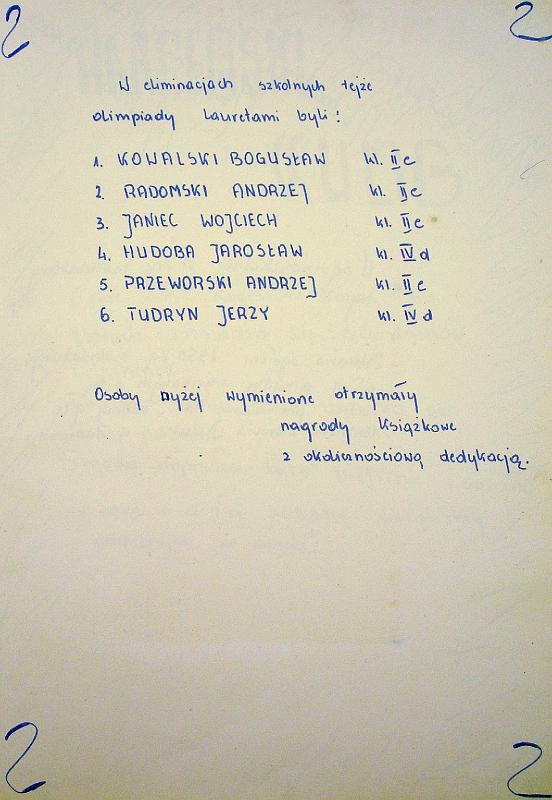 W eliminacjach szkolnych tejże
olimpiady Lauretami byli:
1. KOWALSKI BOGUSŁAW kl. II c
2. RADOMSKI ANDRZEJ kl. II c
3. JANIEC WOJCIECH kl. II c
4. HUDOBA JAROSŁAW kl. IV d
5. PRZEWORSKI ANDRZEJ kl. II e
6. TUDRYN JERZY kl. IV d
Osoby wyżej wymienione otrzymały
nagrody książkowe
z okolicznościową dedykacją.